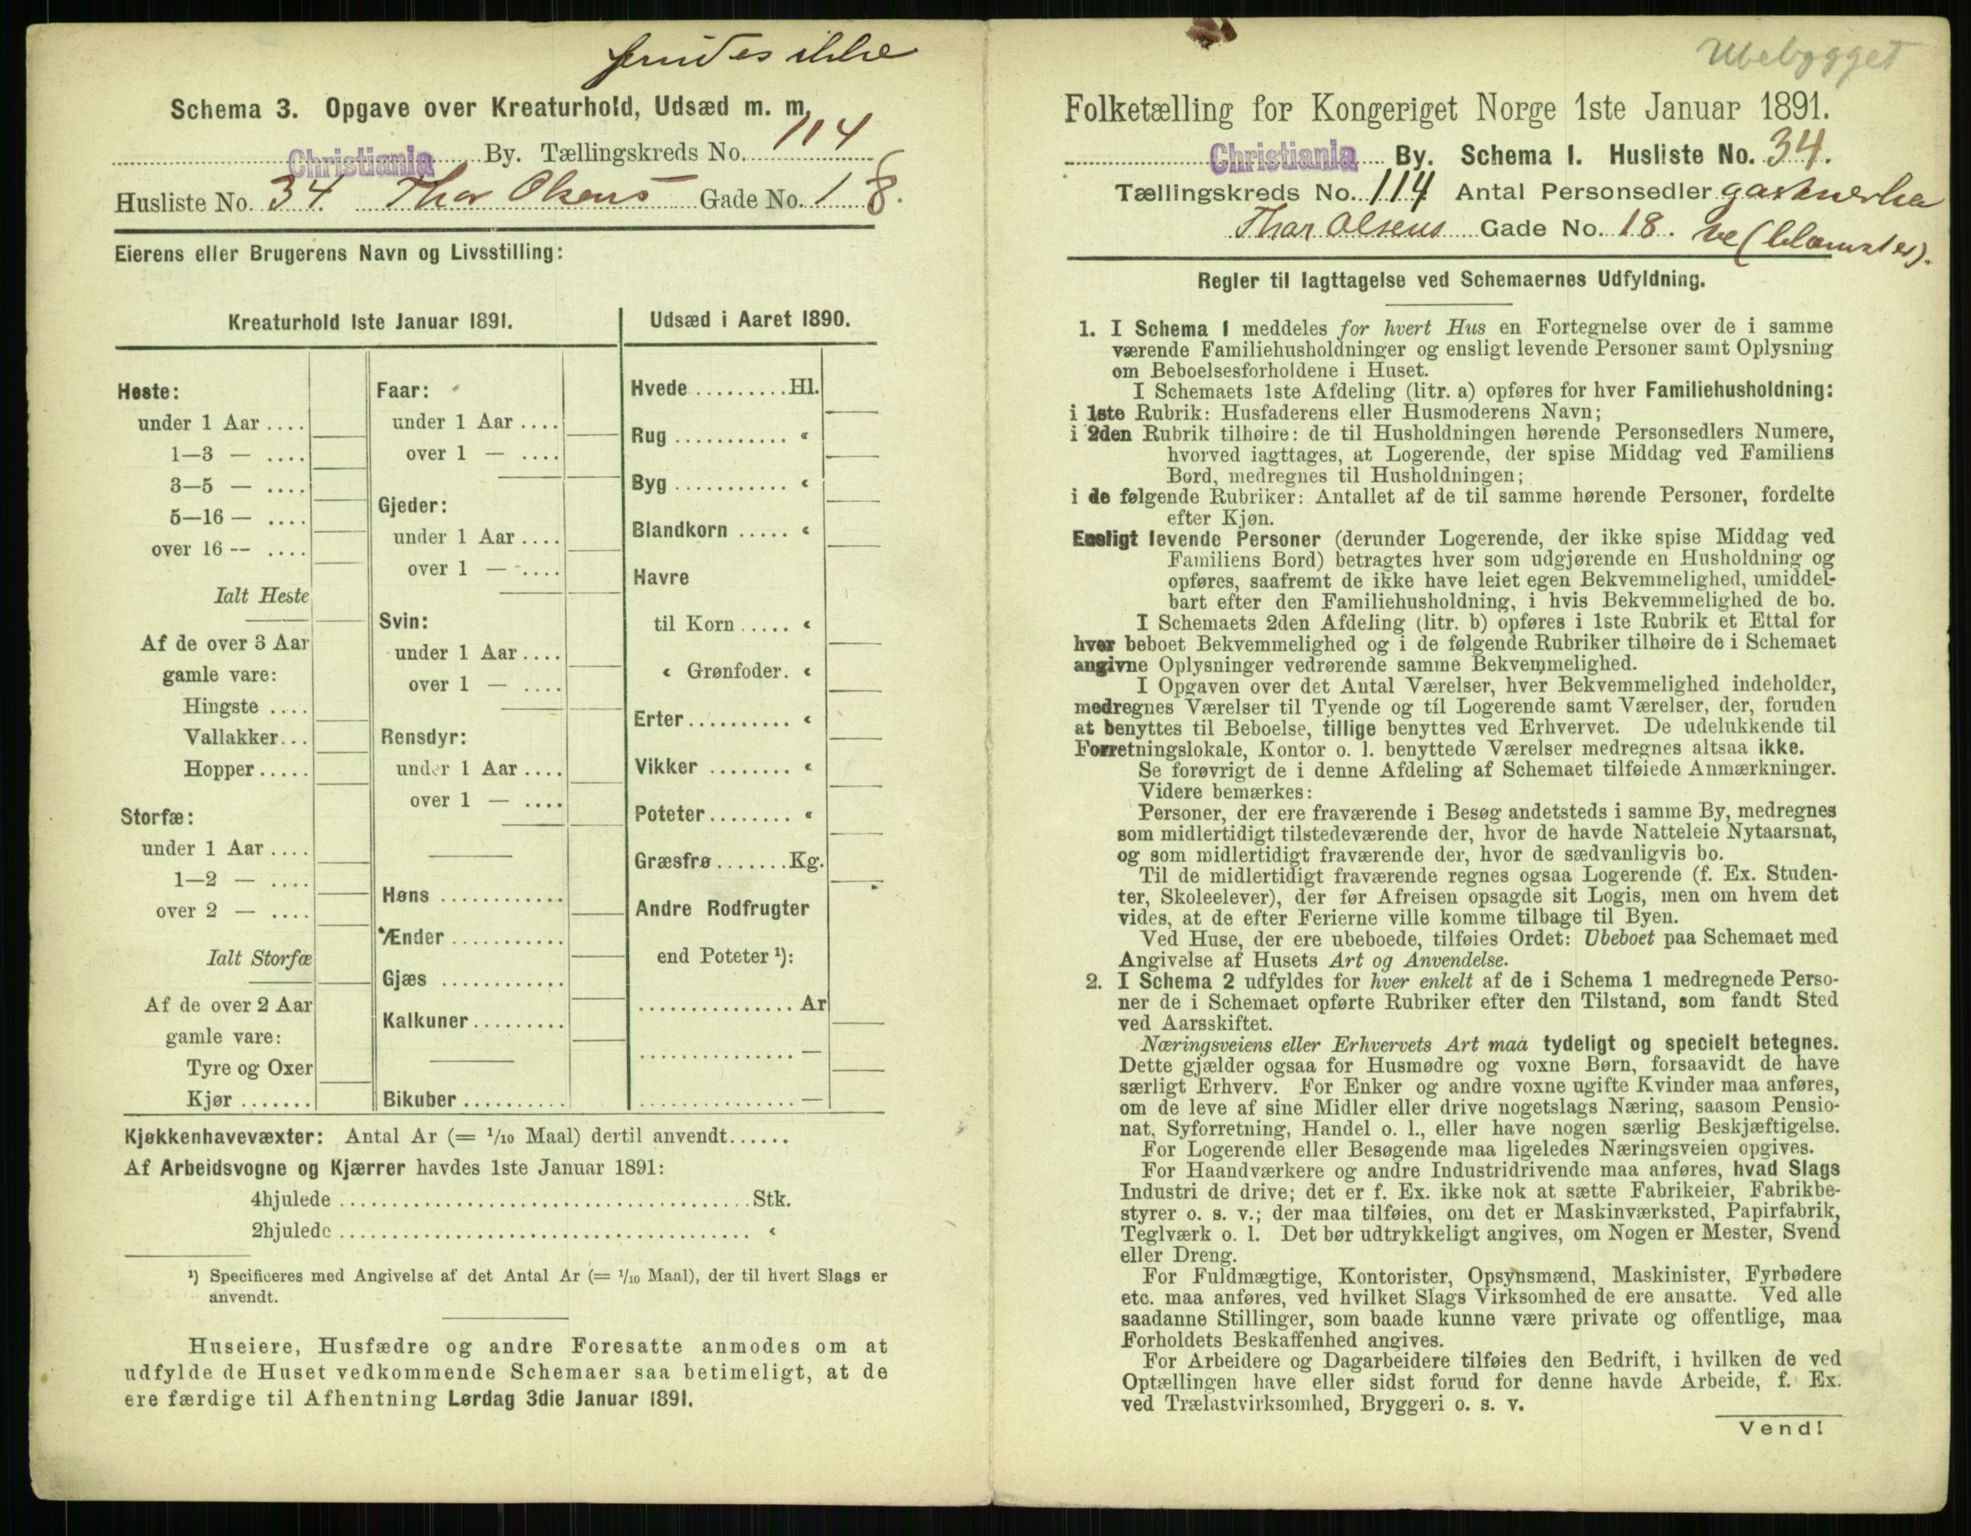 findes ikke
Schema 3. Opgave over Kreaturhold, Udsæd m. m.
Christiania By. Tællingskreds No. 114
Husliste No. 34. Thor Olsens Gade No. 18.
Eierens eller Brugerens Navn og Livsstilling:
Kreaturhold 1ste Januar 1891.
Heste:
under 1 Aar ....
1—3 — ....
3—5 — ....
5—16 — ....
over 16 — ....
Ialt Heste
Af de over 3 Aar
gamle vare:
Hingste ....
Vallakker...
Hopper.....
Storfæ:
under 1 Aar ....
1—2 — ....
over 2 — ....
Ialt Storfæ
Af de over 2 Aar
gamle vare:
Tyre og Oxer
Kjør .......
Faar:
under 1 Aar ....
over 1 — ....
Gjeder:
under 1 Aar ....
over 1 — ....
Svin:
under 1 Aar ....
over 1 — ....
Rensdyr:
under 1 Aar ....
over 1 — ....
Høns ...........
Ænder ...........
Gjæs ...........
Kalkuner.........
Bikuber ..........
Udsæd i Aaret 1890.
Hvede .........Hl.
Rug ........... «
Byg ........... «
Blandkorn ..... «
Havre
til Korn ..... «
« Grønfoder. «
Erter.......... «
Vikker ........ «
Poteter........ «
Græsfrø .......Kg.
Andre Rodfrugter
end Poteter ¹):
............... Ar
............... —
............... —
Kjøkkenhavevæxter: Antal Ar (= 1/10 Maal) dertil anvendt......
Af Arbeidsvogne og Kjærrer havdes 1ste Januar 1891:
4hjulede ........................................Stk.
2hjulede ........................................ «
¹) Specificeres med Angivelse af det Antal Ar (= 1/10 Maal), der til hvert Slags er
anvendt.
Huseiere, Husfædre og andre Foresatte anmodes om at
udfylde de Huset vedkommende Schemaer saa betimeligt, at de
ere færdige til Afhentning Lørdag 3die Januar 1891.
Ubebygget
Folketælling for Kongeriget Norge 1ste Januar 1891.
Christiania By. Schema 1. Husliste No. 34.
Tællingskreds No. 114 Antal Personsedler gartnerha
Thor Olsens Gade No. 18. ve (blomster).
Regler til Iagttagelse ved Schemaernes Udfyldning.
1. I Schema 1 meddeles for hvert Hus en Fortegnelse over de i samme
værende Familiehusholdninger og ensligt levende Personer samt Oplysning
om Beboelsesforholdene i Huset.
I Schemaets 1ste Afdeling (litr. a) opføres for hver Familiehusholdning:
i 1ste Rubrik: Husfaderens eller Husmoderens Navn;
i 2den Rubrik tilhøire: de til Husholdningen hørende Personsedlers Numere,
hvorved iagttages, at Logerende, der spise Middag ved Familiens
Bord, medregnes til Husholdningen;
i de følgende Rubriker: Antallet af de til samme hørende Personer, fordelte
efter Kjøn.
Ensligt levende Personer (derunder Logerende, der ikke spise Middag ved
Familiens Bord) betragtes hver som udgjørende en Husholdning og
opføres, saafremt de ikke have leiet egen Bekvemmelighed, umiddel-
bart efter den Familiehusholdning, i hvis Bekvemmelighed de bo.
I Schemaets 2den Afdeling (litr. b) opføres i 1ste Rubrik et Ettal for
hver beboet Bekvemmelighed og i de følgende Rubriker tilhøire de i Schemaet
angivne Oplysninger vedrørende samme Bekvemmelighed.
I Opgaven over det Antal Værelser, hver Bekvemmelighed indeholder,
medregnes Værelser til Tyende og til Logerende samt Værelser, der, foruden
at benyttes til Beboelse, tillige benyttes ved Erhvervet. De udelukkende til
Forretningslokale, Kontor o. l. benyttede Værelser medregnes altsaa ikke.
Se forøvrigt de i denne Afdeling af Schemaet tilføiede Anmærkninger.
Videre bemærkes:
Personer, der ere fraværende i Besøg andetsteds i samme By, medregnes
som midlertidigt tilstedeværende der, hvor de havde Natteleie Nytaarsnat,
og som midlertidigt fraværende der, hvor de sædvanligvis bo.
Til de midlertidigt fraværende regnes ogsaa Logerende (f. Ex. Studen-
ter, Skoleelever), der før Afreisen opsagde sit Logis, men om hvem det
vides, at de efter Ferierne ville komme tilbage til Byen.
Ved Huse, der ere ubeboede, tilføies Ordet: Ubeboet paa Schemaet med
Angivelse af Husets Art og Anvendelse.
2. I Schema 2 udfyldes for hver enkelt af de i Schema 1 medregnede Perso-
ner de i Schemaet opførte Rubriker efter den Tilstand, som fandt Sted
ved Aarsskiftet.
Næringsveiens eller Erhvervets Art maa tydeligt og specielt betegnes.
Dette gjælder ogsaa for Husmødre og voxne Børn, forsaavidt de have
særligt Erhverv. For Enker og andre voxne ugifte Kvinder maa anføres,
om de leve af sine Midler eller drive nogetslags Næring, saasom Pensio-
nat, Syforretning, Handel o. l., eller have nogen særlig Beskjæftigelse.
For Logerende eller Besøgende maa ligeledes Næringsveien opgives.
For Haandværkere og andre Industridrivende maa anføres, hvad Slags
Industri de drive; det er f. Ex. ikke nok at sætte Fabrikeier, Fabrikbe-
styrer o. s. v.; der maa tilføies, om det er Maskinværksted, Papirfabrik,
Teglværk o. l. Det bør udtrykkeligt angives, om Nogen er Mester, Svend
eller Dreng.
For Fuldmægtige, Kontorister, Opsynsmænd, Maskinister, Fyrbødere
etc. maa anføres, ved hvilket Slags Virksomhed de ere ansatte. Ved alle
saadanne Stillinger, som baade kunne være private og offentlige, maa
Forholdets Beskaffenhed angives.
For Arbeidere og Dagarbeidere tilføies den Bedrift, i hvilken de ved
Optællingen have eller sidst forud for denne havde Arbeide, f. Ex.
ved Trælastvirksomhed, Bryggeri o. s. v.
Vend!